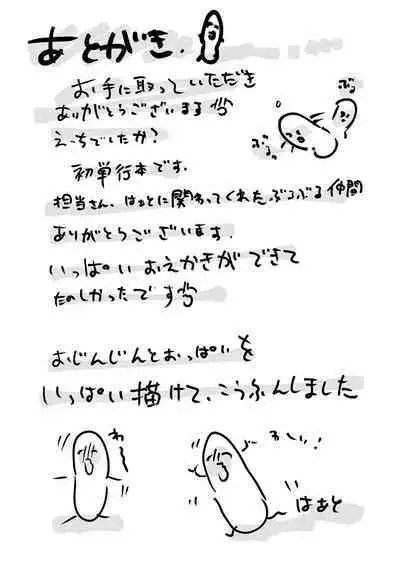 あとがき.
お手に取っていただき
ありがとうございます
えっちでしたか?
初単行本です.
担当さん、はぁとに関わってくれたぶるぶる仲間
ありがとうございます.
いっぱいおえかきができて
たのしかったです
おじんじんとおっぱいを
いっぱい描けて、こうふんしました
ぶる
ぶる
わ〜
はぁと